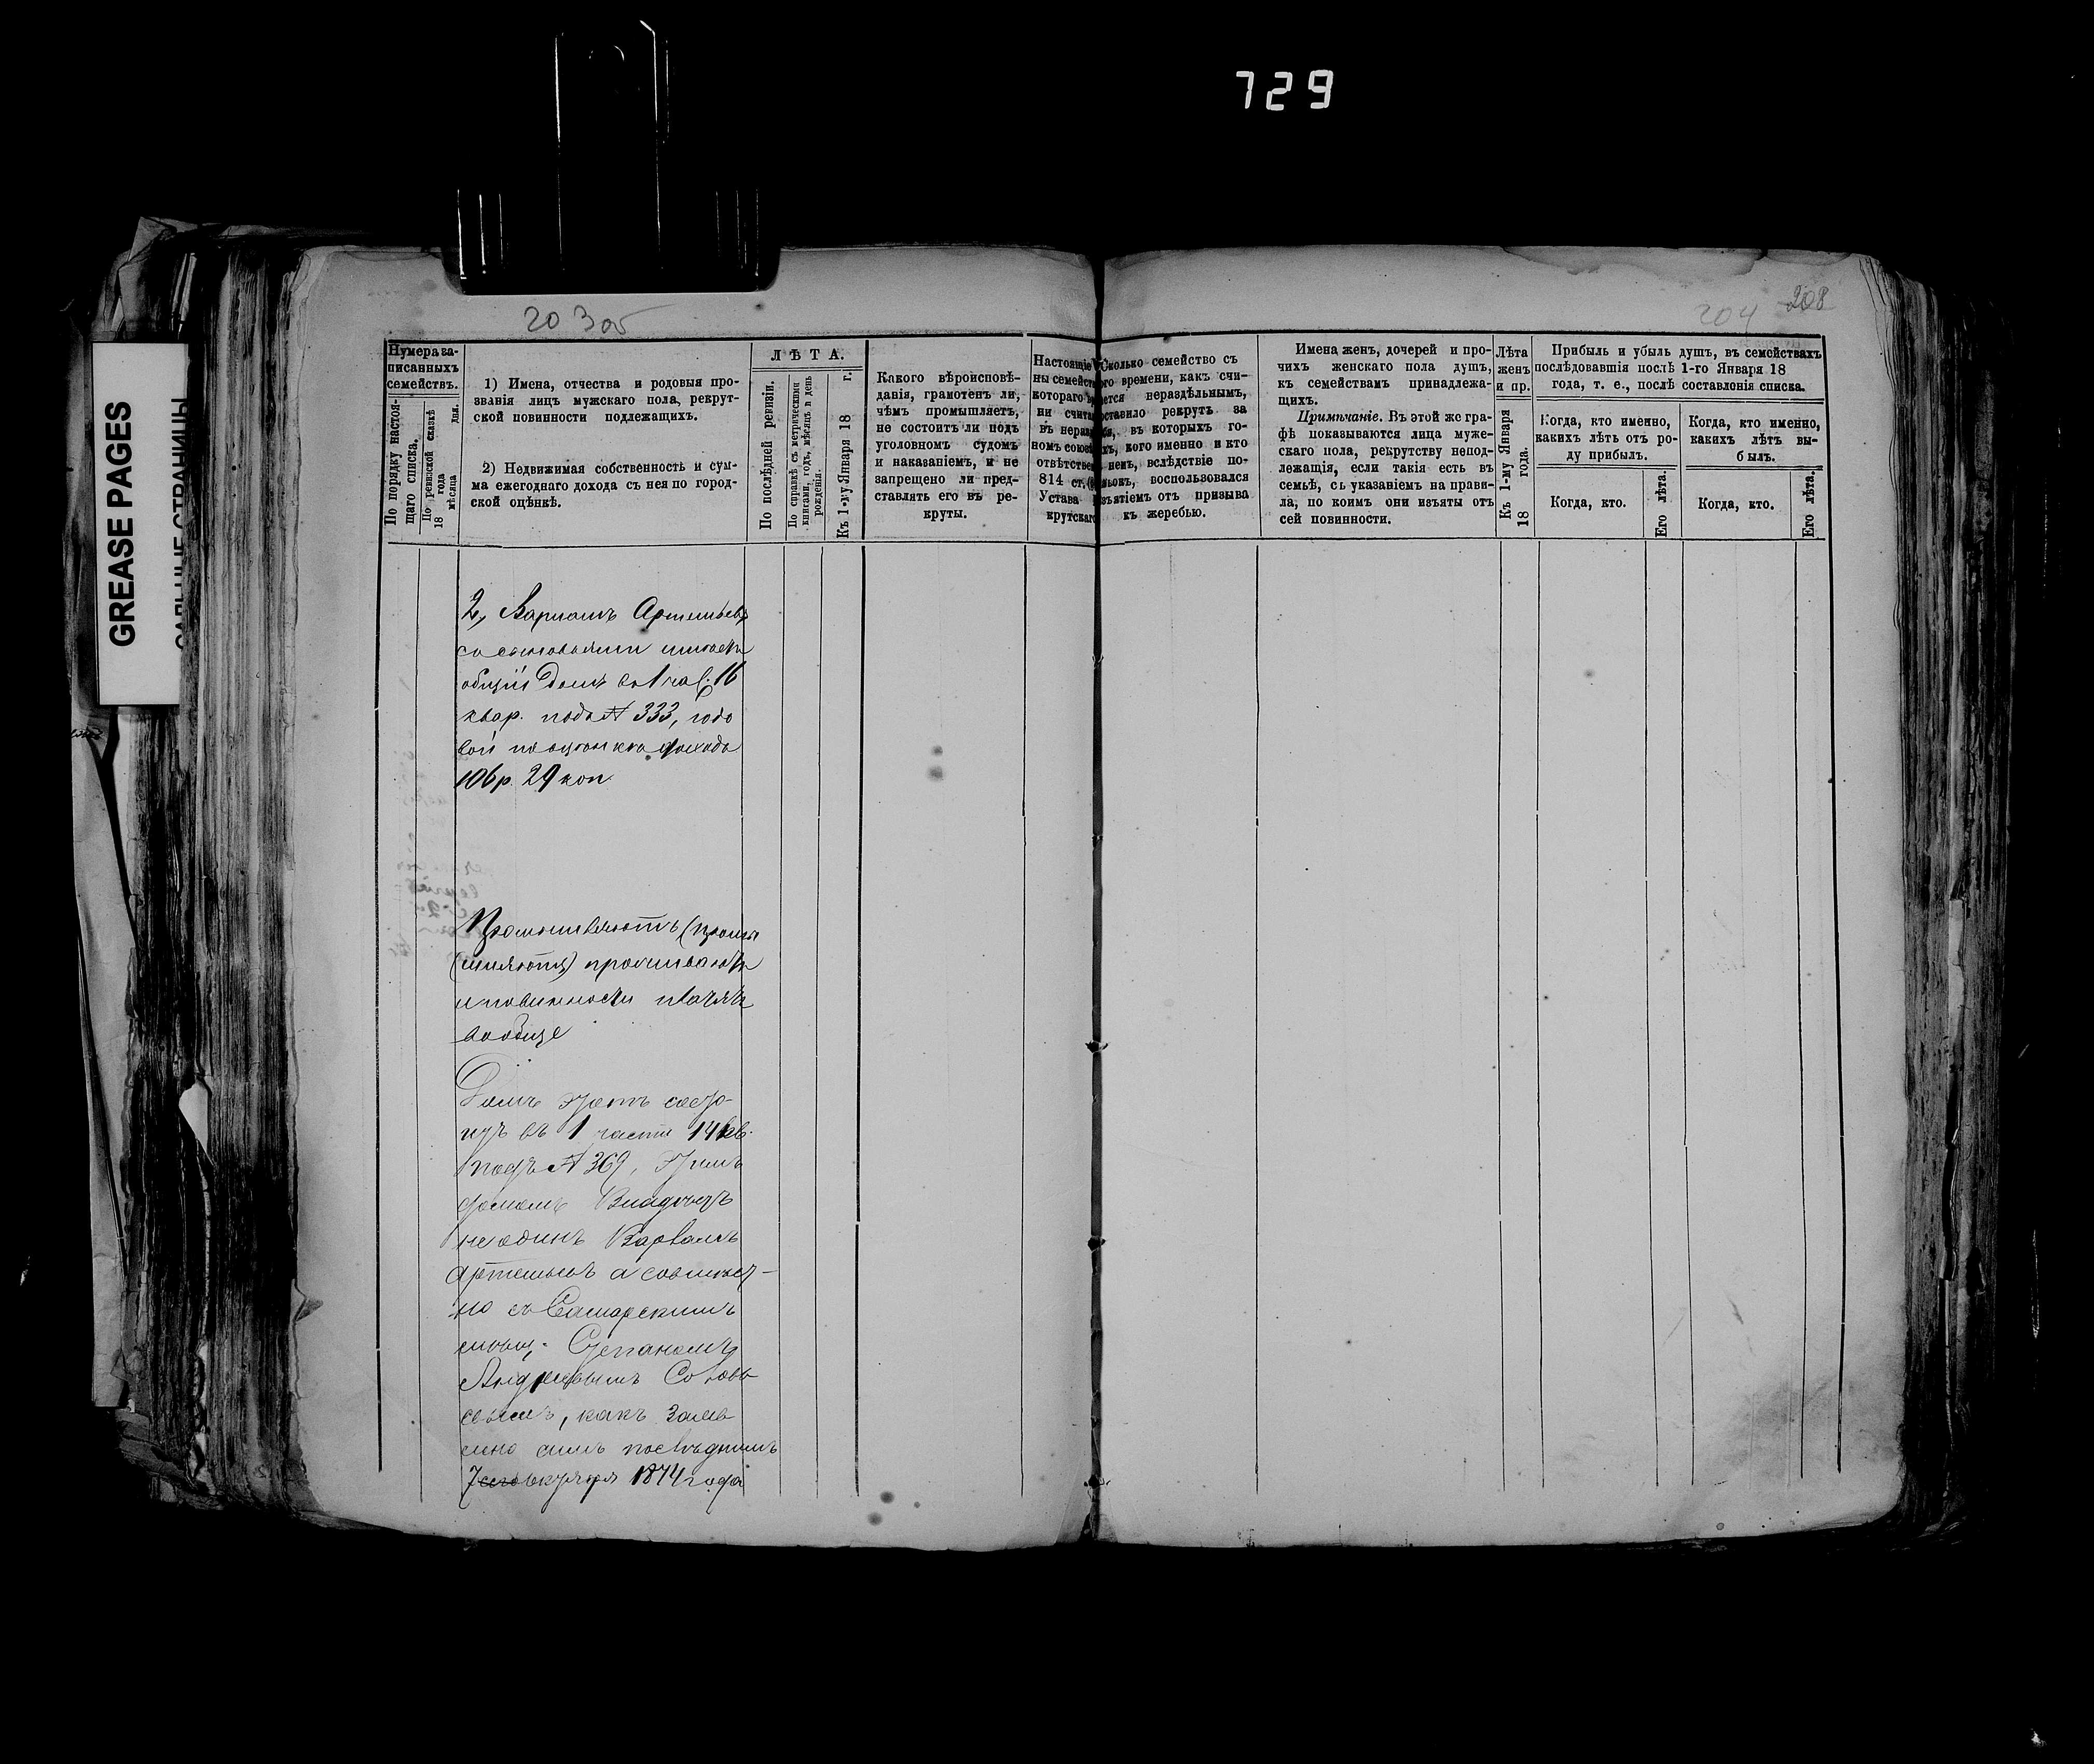 729
GREASE PAGES
САЛЬНЫЕ СТРАНИЦЫ
203об
204 208
Нумера за-
писанныхъ
семействъ.
По порядку настоя-
щаго списка.
По ревизской сказкѣ
18 года
мѣсяца дня.
1) Имена, отчества и родовыя про-
званія лицъ мужскаго пола, рекрут-
ской повинности подлежащихъ.
2) Недвижимая собственность и сум-
ма ежегоднаго дохода съ нея по город-
ской оцѣнкѣ.
ЛѢТА.
По послѣдней ревизіи.
По справкѣ съ метрическими
книгами, годъ, мѣсяцъ и день
рожденія.
Къ 1-му Января 18 г.
Какого вѣроисповѣ-
данія, грамотенъ ли,
чѣмъ промышляетъ,
не состоитъ ли подъ
уголовномъ судомъ
и наказаніемъ, и не
запрещено ли пред-
ставлять его въ ре-
круты.
Настоящіе
ны семейст
котораго
ни счита
въ нераз
номъ союз
отвѣтстве
814 ст.
Устава
крутскаг
Сколько семейство съ
ого времени, какъ счи-
ается нераздѣльнымъ,
оставило рекрутъ за
бя, въ которыхъ го-
хъ, кого именно и кто
немъ, вслѣдствіе по-
ьокъ, воспользовался
зъятіемъ отъ призыва
къ жеребью.
Имена женъ, дочерей и про-
чихъ женскаго пола душъ,
къ семействамъ принадлежа-
щихъ.
Примѣчаніе. Въ этой же гра-
фѣ показываются лица муже-
скаго пола, рекрутству непод-
лежащія, если такія есть въ
семьѣ, съ указаніемъ на прави-
ла, по коимъ они изъяты отъ
сей повинности.
Лѣта
женъ
и пр.
Къ 1-му Января
18 года.
Прибыль и убыль душъ, въ семействахъ
послѣдовавшія послѣ 1-го Января 18
года, т. е., послѣ составленія списка.
Когда, кто именно,
какихъ лѣтъ отъ ро-
ду прибылъ.
Когда, кто.
Его лѣта.
Когда, кто именно,
какихъ лѣтъ вы-
былъ.
Когда, кто.
Его лѣта.
2, Артемьевъ
съ сыновьями имѣетъ
общій Домъ въ 1 час. 16
квар. подъ № 333, годо
вой по оцѣнкѣ доходъ
106 р. 29 коп
проживаютъ
и повинности платятъ
вообще
Домъ этотъ состо-
итъ въ 1 части 14 кв.
подъ № 369, Этимъ
домомъ Владѣетъ
не одинъ Варламъ
Артемьевъ а совмѣст-
но съ Самарскимъ
мѣщ. Степаномъ
Андреевымъ
какъ заяв
лено симъ послѣднимъ
7 октября 1874 года